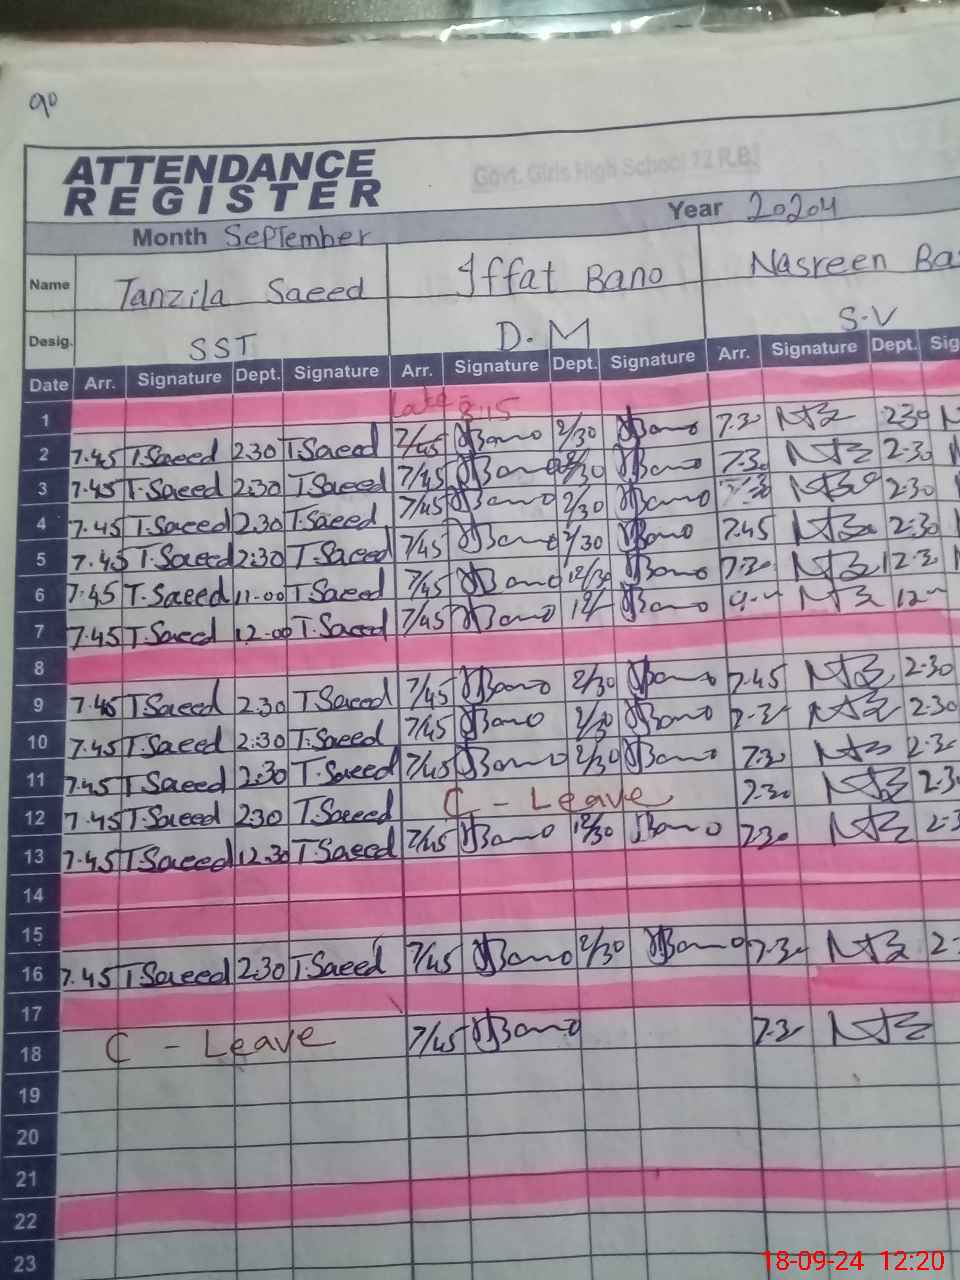 90
ATTENDANCE
REGISTER
Govt. Girls High School 72 R.B.
Month September Year 20204
Name Tanzila Saeed Iffat Bano Nasreen
Desig. SST D.M S.V
Date Arr. Signature Dept. Signature Arr. Signature Dept. Signature Arr. Signature Dept. Sig
1 Late 8:15
2 7.45 T.Saeed 2:30 T.Saeed 7/45 Bano 2/30 Bano 7.30 2.30
3 7.45 T.Saeed 2:30 T.Saeed 7/45 Bano 2/30 Bano 7.30 2.30
4 7.45 T.Saeed 2.30 T.Saeed 7/45 Bano 2/30 Bano 2.30
5 7.45 T.Saeed 2:30 T.Saeed 7/45 Bano 2/30 Bano 7.45 2.30
6 7.45 T.Saeed 11.00 T.Saeed 7/45 Bano 12/30 Bano 7.30 12.30
7 7.45 T.Saeed 12.00 T.Saeed 7/45 Bano 12/ Bano
8
9 7.45 T.Saeed 2:30 T.Saeed 7/45 Bano 2/30 Bano 7.45 2.30
10 7.45 T.Saeed 2:30 T.Saeed 7/45 Bano 2/30 Bano 2.30
11 7.45 T.Saeed 2:30 T.Saeed 7/45 Bano 2/30 Bano 7.30 2.30
12 7.45 T.Saeed 2:30 T.Saeed C - Leave 7.30 2.3
13 7.45 T.Saeed 12.30 T.Saeed 7/45 Bano 12/30 Bano 7.30 2.3
14
15
16 7.45 T.Saeed 2:30 T.Saeed 7/45 Bano 2/30 Bano 7.30 2.
17
18 C - Leave 7/45 Bano 7.30
19
20
21
22
23
18-09-24 12:20